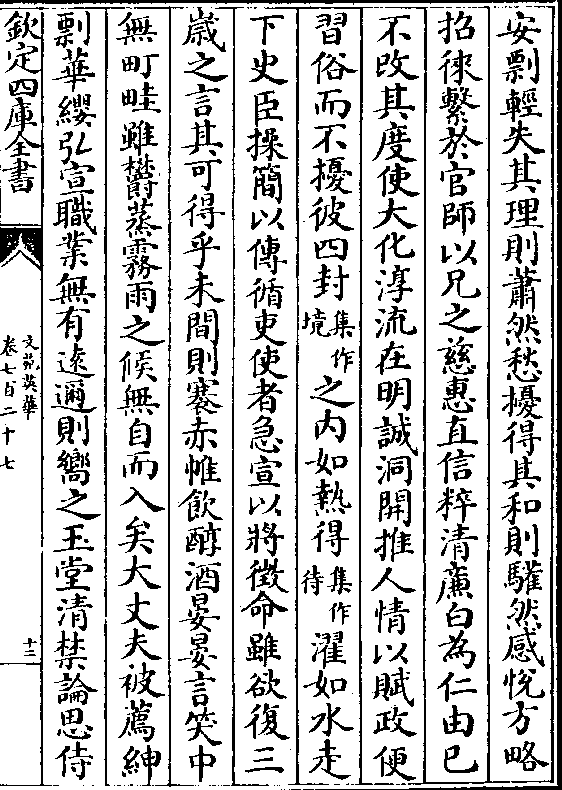 安剽輕失其理則蕭然愁擾得其和則驩然感悦方略
招徠繫於官師以兄之慈惠直信粹清廉白為仁由已
不改其度使大化淳流在明誠洞開推人情以賦政便
習俗而不擾彼四封集作境之内如熱得集作待濯如水走
下史臣操簡以傳循吏使者急宣以將徴命雖欲復三
嵗之言其可得乎未間則褰赤帷飲醇酒晏晏言笑中
無町畦雖欎蒸霧雨之候無自而入矣大丈夫被薦紳
剽華纓弘宣職業無有逺邇則嚮之玉堂清禁論思侍
欽定四庫全書
文苑英華
卷七百二十七
十三